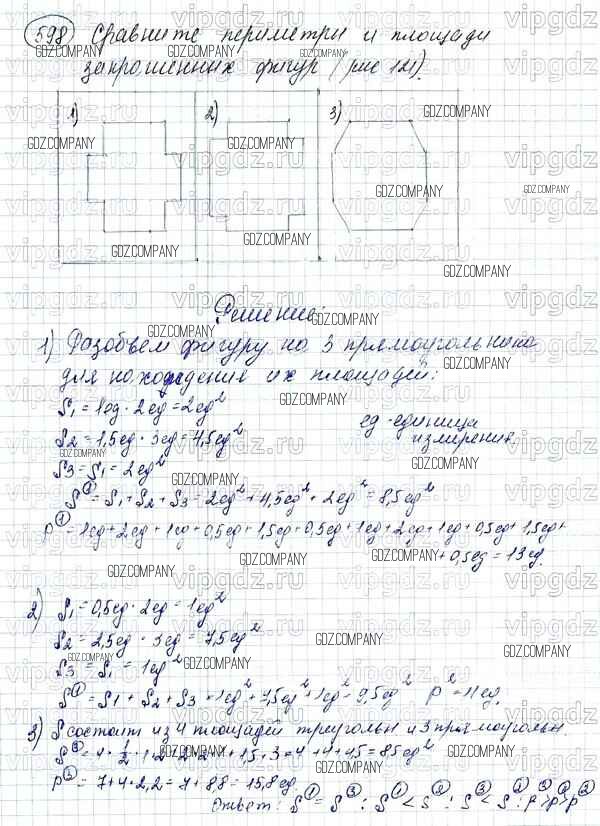 598 Сравните периметры и площади
закрашенных фигур (рис 121).
1) 2) 3)
Решение:
1) Разобьем фигуру на 3 прямоугольника
для нахождения их площадей:
S₁ = 1ед · 2ед = 2ед²
ед - единица
измерения.
S₂ = 1,5ед · 3ед = 4,5ед²
S₃ = S₁ = 2ед²
S① = S₁ + S₂ + S₃ = 2ед² + 4,5ед² + 2ед² = 8,5ед²
P① = 1ед + 2ед + 1ед + 0,5ед + 1,5ед + 0,5ед + 1ед + 2ед + 1ед + 0,5ед + 1,5ед +
+ 0,5ед = 13ед.
2) S₁ = 0,5ед · 2ед = 1ед²
S₂ = 2,5ед · 3ед = 7,5ед²
S₃ = S₁ = 1ед²
S = S₁ + S₂ + S₃ = 1ед² + 7,5ед² + 1ед² = 9,5ед² P² = 11ед.
3) S состоит из 4 площадей треугольн и 3 прямоугольн.
= 4 + 4,5 = 8,5ед²
= 7 + 4 · 2,2 = 7 + 8,8 = 15,8ед.
Ответ: S① = S③ ; S① < S② ; S③ < S② ;
GDZ.COMPANY
vipgdz.ru